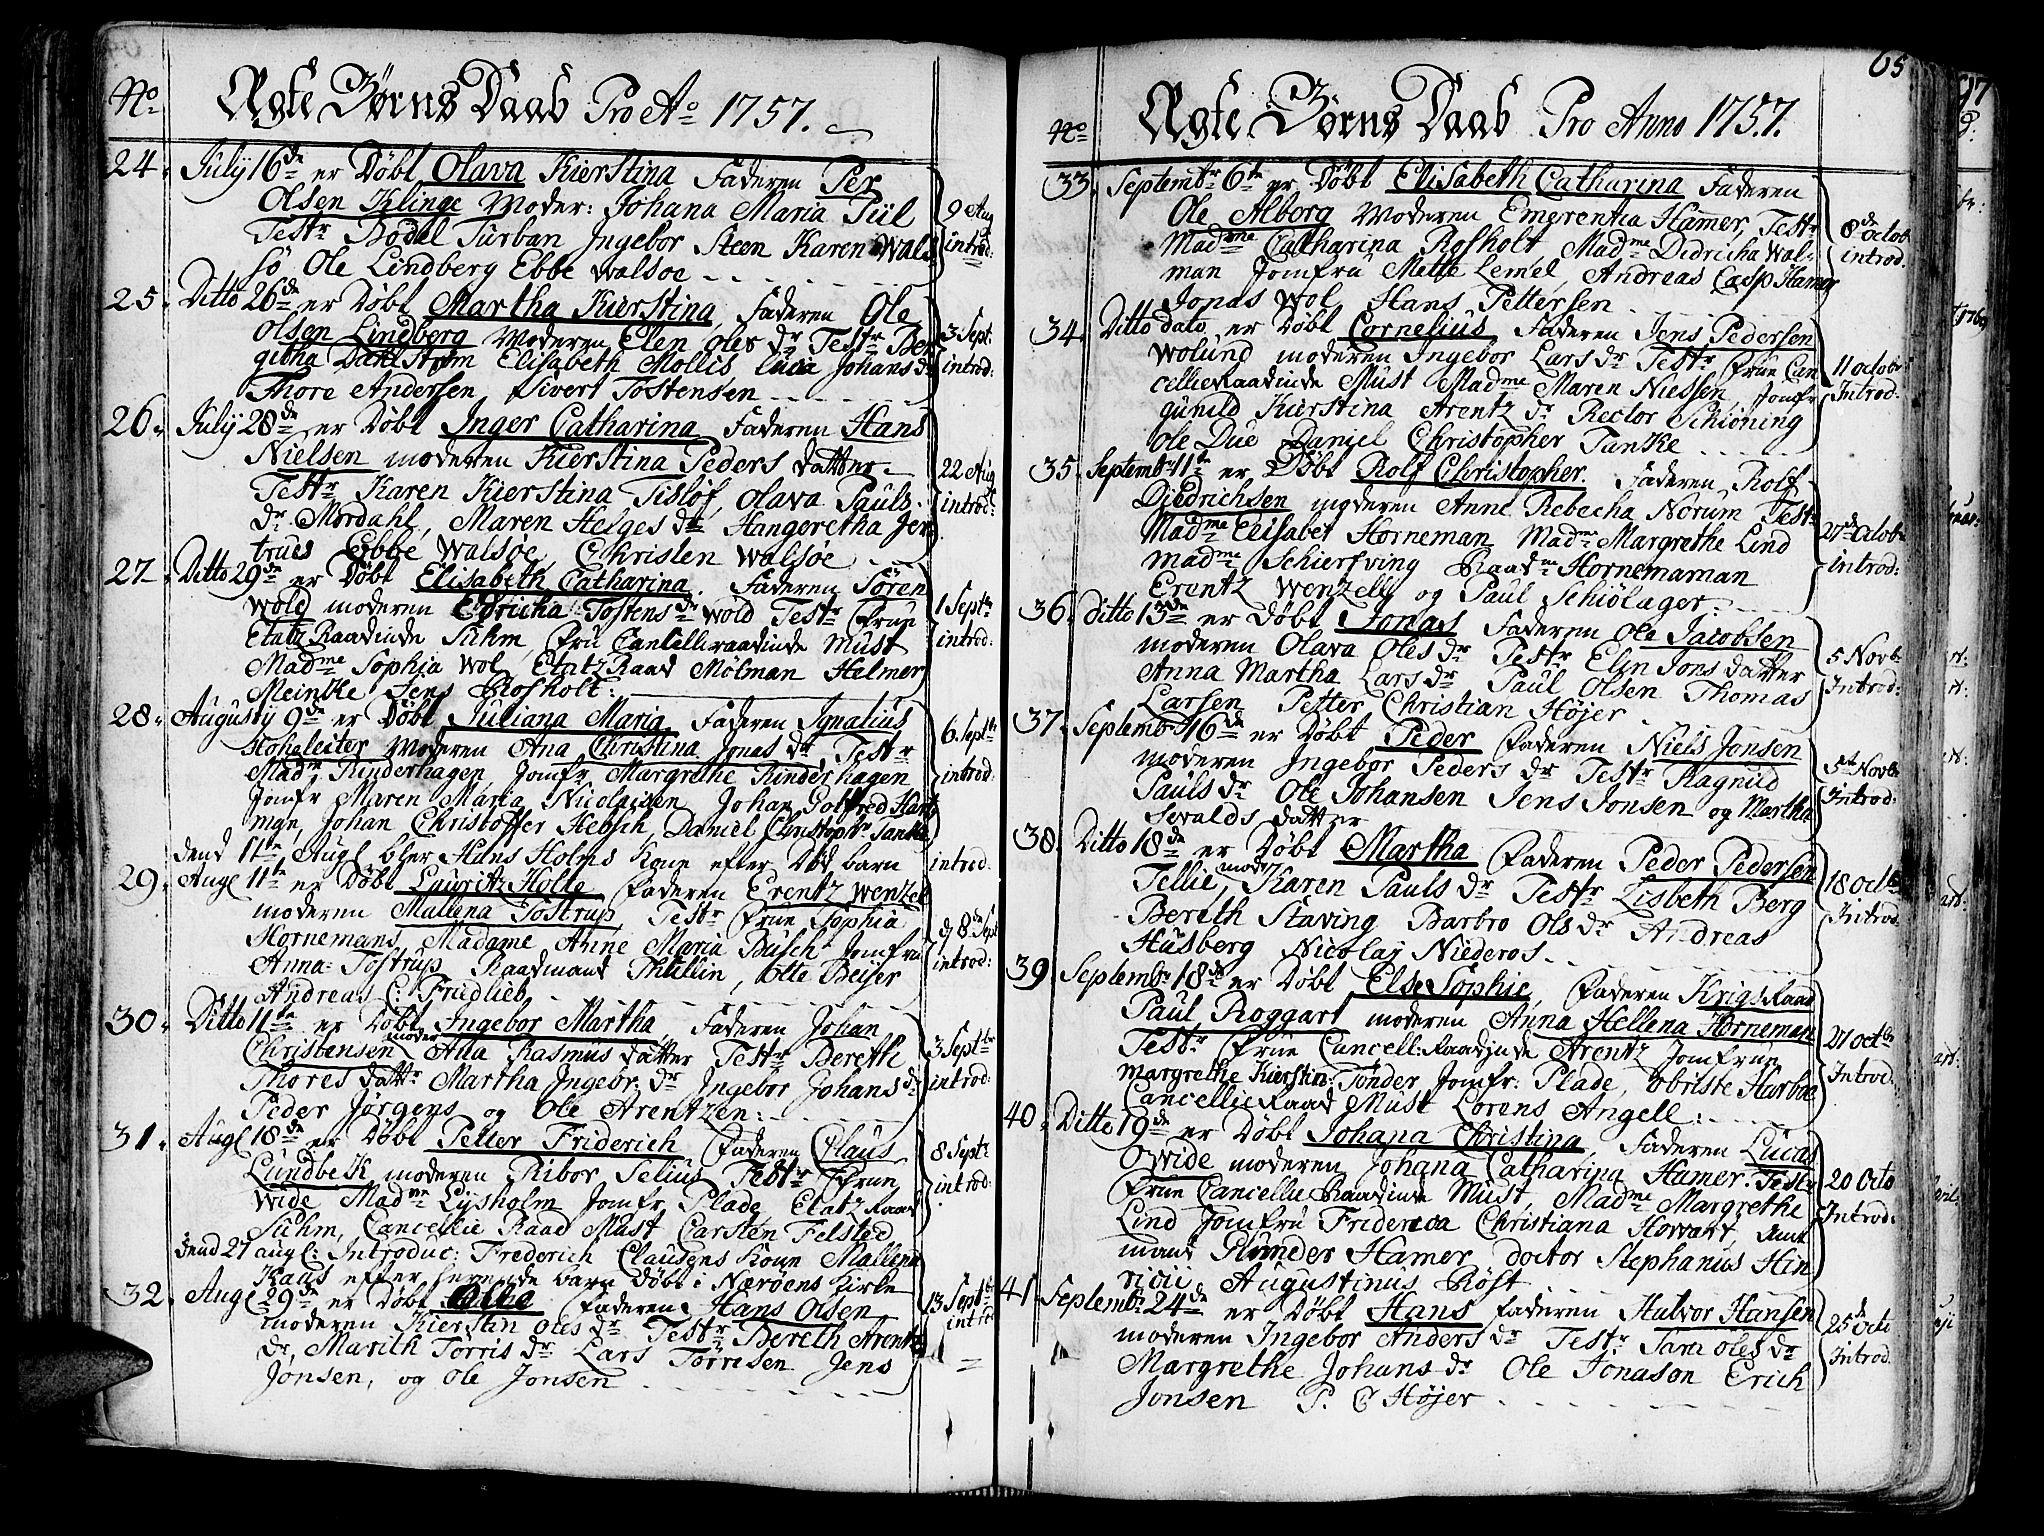 No Ægte Børns Daab Pro Ao 1757.
24. July 16de er Døbt Olava Kierstina Faderen Per
Olsen Klinge Moder: Johana Maria Piil
Testr Bodel Turban Ingebor Steen Karen Wal
sö Ole Lindberg Ebbe Walsoe
9 Aug
introd:
25. Ditto 26de er Døbt Martha Kierstina, Faderen Ole
Olsen Lindberg Moderen Elen Oles dr Testr Ber
githa Dahlstrøm Elisabeth Mollis Lucia Johans dr
Thore Andersen Sivert Tostensen
3 Sept:
introd:
26. July 28de er Døbt Inger Catharina Faderen Hans
Nielsen moderen Kierstina Peders datter
Testr Karen Kierstina Tisløf, Olava Pauls
dr Mordahl, Maren Helges dr Hangeretha Jer
trues Ebbe Walsøe, Christen Walsoe
22 Aug
introd:
27. Ditto 29de er Døbt Elisabeth Catharina. Faderen Sören
Wold moderen Edricha Tostens dr Wold Testr Frue
Etatz Raadinde Suhm, Fru Cancelliraadinde Must
Madme Sophia Wol, EtatzRaad Mölman Helmer
Meincke Jens Rosholt:
1 Septr
introd:
28. Augusty 9de er Døbt Juliana Maria, Faderen Ignatius
Hoheleiter Moderen Ana Christina Jonas dr, Testr
Madm, Rinderhagen, Jomfr Margrethe Rinderhagen
Jomfr Maren Maria Nicolaisen Johan Gotfred Hart
man, Johan Christoffer Hebsch, Daniel Christophr Tanke
6. Septbr
introd:
dend 11te Augl blev Hans Holms Kone efter Død barn
introd.
29. Augl 11te er Døbt Lauritz Holte Faderen Erentz Wenzell
moderen Mallena Tostrup, Testr Frue Sophia
Hornemans, Madame Anne Maria Busch Jomfru
Anna Tostrup Raadmand Thellin, Otte Beijer
Andreas C: Frudlieb
d 8de Sept
introd:
30. Ditto 11te er Døbt Ingebor Martha, Faderen Johan
Christensen moder Ana Rasmus datter Testr Bereth
Thores datr Martha Ingebr: dr Ingebor Johans dr
Peder Jörgens og Ole Arentzen:
3 Septbr
introd:
31. Augl 18de er Døbt Petter Friderich Faderen Claus
Lundbeck moderen Ribor Selius Testr Frue
Wide Madme Lysholm Jomfr Plade, EtatzRaad
Suhm, Cancellie Raad Must Carsten Felsted
8 Septr
introd:
dend 27 augl: Introduc: Frederich Clausens Kone Mallena
Kaus efter barn Døbt i Nærøens Kirke
32. Augl 29de er Døbt Olle Faderen Hans Olsen
moderen Kierstin Oles dr Testr Bereth Arentz
dr, Marith Torris dr Lars Torrisen Jens
Jonsen, og Ole Jonsen
13 Septbr
introd
65
No Ægte Børns Daab Pro Anno 1757.
33. Septembr 6te er Døbt Elisabeth Catharina Faderen
Ole Alborg Moderen Emerentia Hamer, Testr
Madme Catharina Rosholt Madme Didricha Wal
man Jomfru Mette Lemel, Andreas Casp Hamer
Jonas Wol Hans Pettersen
8de Octob
introd.
34. Ditto dato er Døbt Cornelius Faderen Jens Pedersen
Wolund moderen Ingebor Lars dr Testr Frue Can
cellieRaadinde Must Madme Maren Nielsen Jomfr
Gunild Kierstina Arentz dr Rector Schiöning
Ole Due Daniel Christopher Tanke
11 octobr
Introd:
35. Septembr 11te er Døbt Rolf Christopher. Faderen Rolf
Diedrichsen moderen Anne Rebecha Norum Testr
Madme Elisabet Horneman Madme Margrethe Lind
Madme Schierfving Raadm Hornemaman
Erentz Wenzell og Paul Schiölager:
27de Octobr
introd:
36. Ditto 13de er Døbt Jonas Faderen Ole Jacobsen
moderen Olava Oles dr Testr Elin Jons datter
Anna Martha Lars dr Paul Olsen Thomas
Larsen Petter Christian Højer
5 Novbr
Introd:
37. Septembr 16de er Døbt Peder Faderen Niels Jonsen
moderen Ingebor Peders dr Testr Ragnild
Pauls dr Ole Johansen Jens Jonsen og Martha
Sevalds datter
5te Novbr
Introd:
38. Ditto 18de er Døbt Martha Faderen Peder Pedersen
Tellie, moder Karen Pauls dr Testr Lisbeth Berg
Bereth Staving Barbro Ols dr Andreas
Husberg Nicolaj Niederos
18 Octbr
Introd:
39. Septembr 18de er Døbt Else Sophie, Faderen KrigsRaad
Paul Roggart moderen Anna Hellena Horneman
Testr Frue Cancell:Raadinde Arentz Jomfrue
Margrethe Kierstin: Tönder Jomfr: Plade, obrilste Hurboe
CancellieRaad Must Lorens Angell:
27 octbr
Introd:
40. Ditto 19de er Døbt Johana Christina, Faderen Lucas
Owide moderen Johana Catharina Hamer. Testr
Frue Cancellie Raadinde Must, Madme Margrethe
Lind Jomfru Friderica Christiana Howart, Amt
mand Hamer, Doctor Stephanus Hin
ricii Augustinus Röst
20 Octo
Introd:
41. Septembr 24de er Døbt Hans faderen Halvor Hansen
moderen Ingebor Anders dr Testr: Sara Oles dr
Margrethe Johans dr Ole Jonason Erich
Jonsen P. C Højer
25de Octo
Introd.